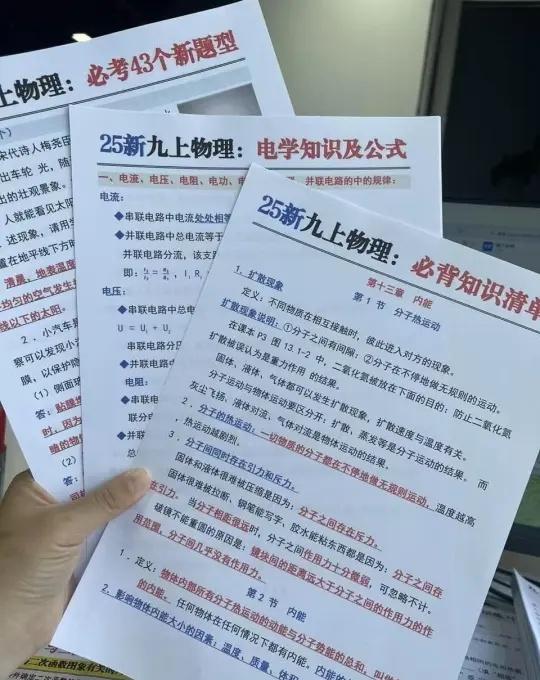 上物理：必考43个新题型
宋代诗人梅尧臣
出车轮 光，随
出的壮观景象。
人就能看见太阳
述现象，请用
置在地平线下方时
清晨，地表温度
不均匀的空气发生
线以下的太阳。
2．小汽车
察可以发现小
膜，以保护隐
(1) 侧面玻
答：贴膜
时，因为
暗的物
(2)
答：
25新九上物理：电学知识及公式
一、电流、电压、电阻、电功、电
并联电路的中的规律：
电流：
◆串联电路中电流处处相等
◆并联电路中总电流等于
并联电路分流，该支
电压：
◆串联电路中总电
U = U₁ + U₂
串联电路分压
◆并联电路中
电阻：
◆串联电
联分电
◆并联
总
25新九上物理：必背知识清单
第十三章 内能
第 1 节 分子热运动
1．扩散现象
定义：不同物质在相互接触时，彼此进入对方的现象。
扩散现象说明：①分子之间有间隙；②分子在不停地做无规则的运动。
在课本 P3 图 13.1-2 中，二氧化氮被放在下面的目的：防止二氧化氮
扩散被误认为是重力作用 的结果。
固体、液体、气体都可以发生扩散现象，扩散速度与温度有关。
分子运动与物体运动要区分开：扩散、蒸发等是分子运动的结果，而
灰尘飞扬，液体对流、气体对流是物体运动的结果。
2．分子的热运动：一切物质的分子都在不停地做无规则运动，温度越高
，热运动越剧烈。
3．分子间同时存在引力和斥力。
固体和液体很难被压缩是因为：分子之间存在斥力。
固体很难被拉断、钢笔能写字，胶水能粘东西都是因为：分子之间存
在引力。 当分子相距很远时，分子之间作用力十分微弱，可忽略不计。
破镜不能重圆的原因是：镜块间的距离远大于分子之间的作用力的作
用范围，分子间几乎没有作用力。
第 2 节 内能
1．定义：物体内部所有分子热运动的动能与分子势能的总和，叫做
的内能。任何物体在任何情况下都有内能。内能的
2．影响物体内能大小的因素：温度、质量、体积
二次函数图象有关的